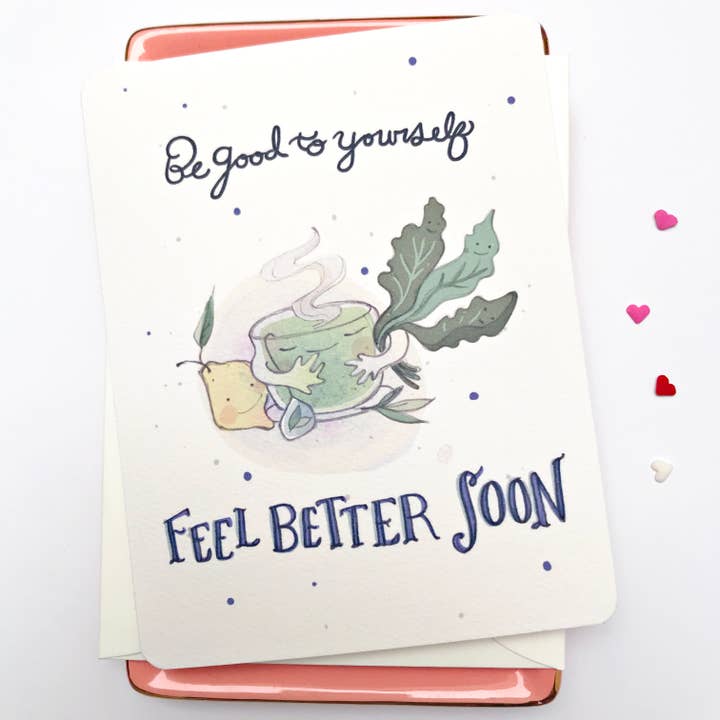 Be good to yourself
FEEL BETTER SOON